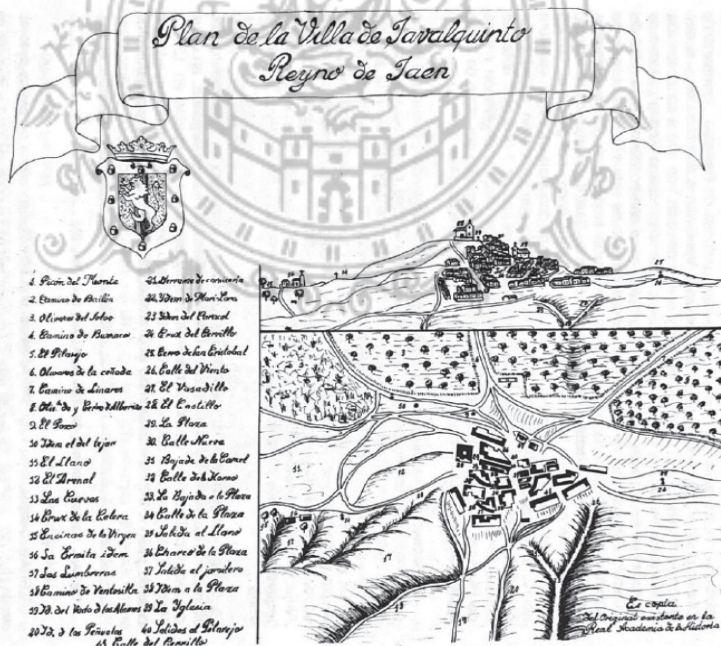 Plan de la Villa de Javalquinto
Reyno de Jaen
1. Picón del Monte
2. Camino de Bailén
3. Olivares del Soloo
4. Camino de
5. El Pilarejo
6. Olivares de la cañada
7. Camino de Linares
8. y Cerro
9. El Pozo
10 Idem el del tejar
11 El Llano
12 El Arenal
13 Las Cuevas
14 Cruz de la Colera
15 Encinas de la Virgen
16 La Ermita idem
17 Las Lumbreras
18 Camino de Ventosilla
19 Id. del Vado d las
20 Id. d las Peñuelas
21 de carniceria
22 Idem de Mari-Lara
23 Idem del
24 Cruz del Cerrillo
25 Cerro de San Cristobal
26 Calle del Viento
27. El Vasadillo
28 El Castillo
29. La Plaza
30. Calle Nueva
31 Bajada de la Carcel
32 Calle del Horno
33. La Bajada a la Plaza
34 Calle de la Plaza
35 Salida al Llano
36 Charco de la Plaza
37 Salida al
38 Idem a la Plaza
39 La Yglesia
40 Salidas al Pilarejo
41 Calle del Cerrillo
Es copia
del Original existente en la
Real Academia de la Historia